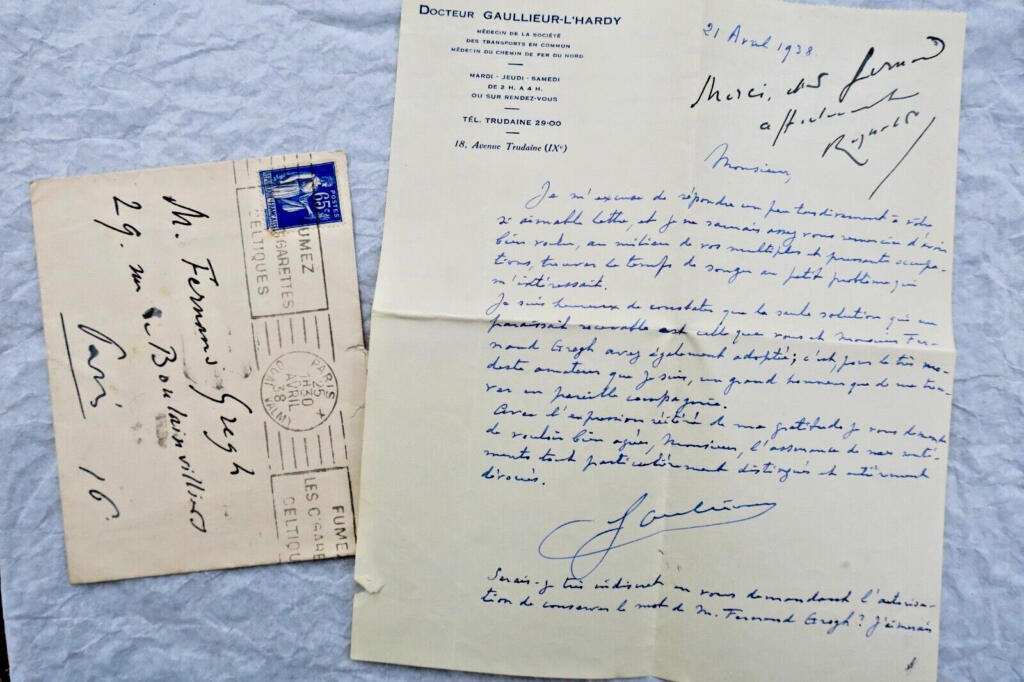 M. Fernand Gregh
29. rue de Boulainvilliers
Paris 16
POSTES
65c
FUMEZ
CIGARETTES
CELTIQUES
PARIS
25
1H30
AVRIL
38
QUAI VALMY
FUMEZ
LES CIGARE
CELTIQU
DOCTEUR GAULLIEUR-L'HARDY
MÉDECIN DE LA SOCIÉTÉ
DES TRANSPORTS EN COMMUN
MÉDECIN DU CHEMIN DE FER DU NORD
MARDI - JEUDI - SAMEDI
DE 2 H. A 4 H.
OU SUR RENDEZ-VOUS
TÉL. TRUDAINE 29-00
18, Avenue Trudaine (IXe)
21 Avril 1938.
Merci, cher Fernand
affectueusement
Monsieur,
Je m'excuse de répondre un peu tardivement à votre
si aimable lettre, et je ne saurais assez vous remercier d'avoir
bien voulu, au milieu de vos multiples et pressantes occupa-
tions, trouver le temps de songer au petit problème qui
m'intéressait.
Je suis heureux de constater que la seule solution qui me
paraissait recevable est celle que vous et Monsieur Fer-
nand Gregh avez également adoptée; c'est, pour le très mo-
deste amateur que je suis, un grand honneur que de me trou-
ver en pareille compagnie.
Avec l'expression réitérée de ma gratitude je vous demande
de vouloir bien agréer, Monsieur, l'assurance de mes senti-
ments tout particulièrement distingués et entièrement
dévoués.
Gaullieur
Serais-je très indiscret en vous demandant l'autorisa-
tion de conserver le mot de M. Fernand Gregh? J'aimerais